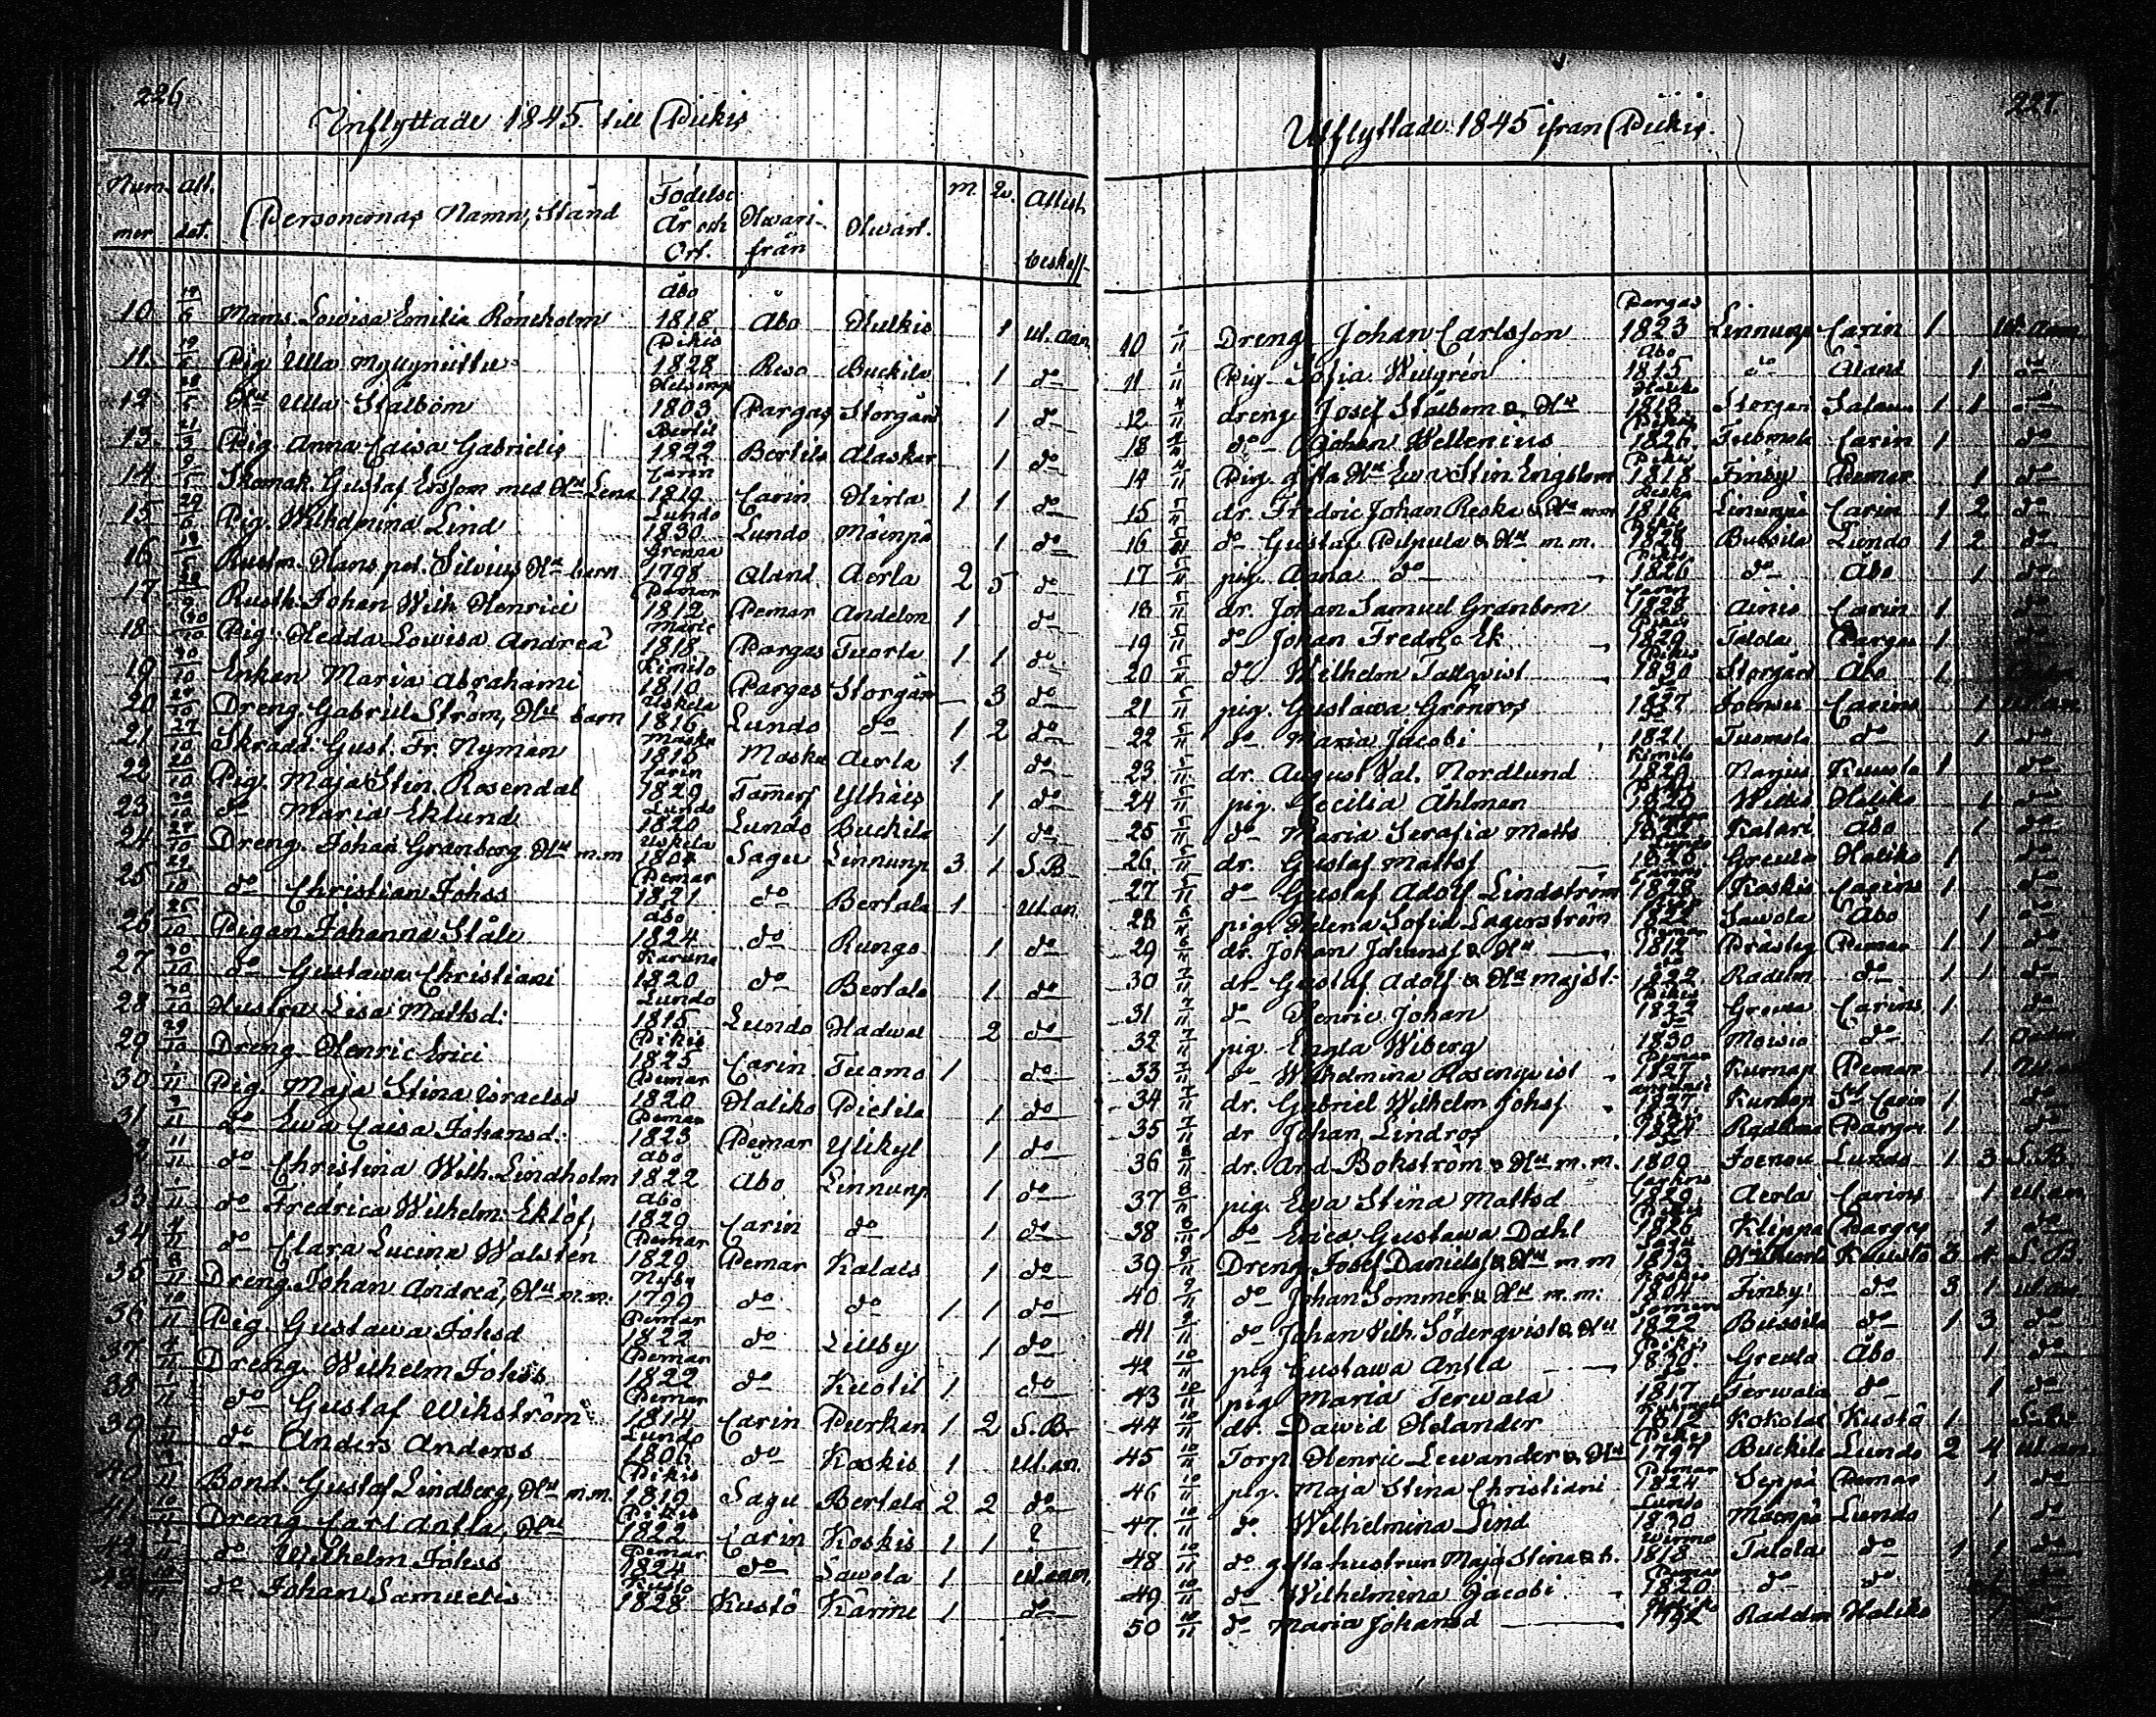 226
Inflyttade 1845 till Pickis
Num mer | Att. dat. | Personernas Namn, Stånd | Födelse År och Ort. | Hwari- från | Hwart. | m. | Qv. | Attest. beskaff.
10 19/6 Mams. Lowisa Emilia Rönnholm Åbo 1818 Åbo Hulkis 1 ut. an.
11. Pig. Ulla Myllynuttu Pikis 1828 Reso Buckila 1 do
12 Hu Ulla Stålbom 1803 Pargas Storgård 1 do
13. Pig. Anna Caisa Gabrielis Bertil 1822 Bertils Alaskar 1 do
14 Skomak. Gustaf Ersson med Hu Lena Carin 1819 Carin Hirla 1 1 do
15 Pig. Wilhelmina Lind Lundo 1830 Lundo Mäenpä 1 do
16 Hans pet. Silvius, Hu barn Grenna 1798 Åland Aerla 2 5 do
17. Rusth. Johan Wilh. Henrici Pemar 1812 Pemar Andelm 1 do
18 20/10 Pig. Hedda Lowisa Andreæ Marie 1818 Pargas Tuorla 1 1 do
19 Enkan Maria Abrahami Kimito 1810 Pargas Storgår — 3 do
20 Dreng. Gabriel Ström, Hu barn Uskela 1816 Lundo do 1 2 do
21 27/10 Skrädd. Gust. Fr. Nyman Masku 1818 Masku Aerla 1 do
22 Pig. Maja Stin. Rosendal Carin 1829 Tamerf Ylhäis 1 do
23. do Maria Eklund Lundo 1820 Lundo Buckila 1 do
24 Dreng. Johan Granberg Hu m.m Uskela 1804 Sagu Linnunp 3 1 S.B.
25 do Christian Johss Pemar 1821 do Bertala 1 ut an.
26 25/10 Pigan Johanna Ståle Åbo 1824 do Rungo 1 do
27 30/10 do Gustawa Christiani Karuna 1820 do Bertala 1 do
28 30/10 Hustru Lisa Mattsd: Lundo 1815 Lundo Hadwal 2 do
29 29/10 Dreng Henric Erici Pikis 1825 Carin Tuomo 1 do
30 1/11 Pig. Maja Stina Israelsd Pemar 1820 Haliko Pietila 1 do
31 do Ewa Caisa Johansd. Pemar 1823 Pemar Ylikyl 1 do
2 do Christina Wilh. Lindholm Åbo 1822 Åbo Linnunp 1 do
33 1/11 do Fredrica Wilhelm. Eklöf, Åbo 1829 Carin do 1 do
34 4/11 do Clara Lucina Walstén Pemar 1829 Pemar Kalais 1 do
35 8/11 Dreng. Johan Andreæ, Hu m.m. Nyby 1799 do do 1 1 do
36 10/11 Pig. Gustawa Johsd Pemar 1822 do Lillby 1 do
37 4/11 Dreng. Wilhelm Johss. Pemar 1822 do Kuotil 1 do
38 1/11 do Gustaf Wikström Pemar 1814 Carin Purkan 1 2 S.B.
39 do Anders Anderss Lundo 1806 do Koskis 1 ut. an.
40 Bond. Gustaf Lindberg, Hu m.m. Pikis 1819 Sagu Bertala 2 2 do
41 10/11 Dreng. Carl Antla, Hu Pikis 1822 Carin Koskis 1 1 ?
42 do Wilhelm Johss Pemar 1824 do Sawela 1 ut. an.
43 do Johan Samuelis Kusto 1828 Kustö Kärme 1 do
227.
Utflyttade 1845 ifrån Pickis.
10 1/11 Dreng Johan Carlsson Pargas 1823 Linnunp Carin 1 ut. ann.
11 1/11 Pig. Sofia Widgrén Åbo 1815 do Åland 1 do
12 4/11 dreng Josef Stålbom & Hu Haliko 1813 Storgår 1 1 do
13 do Johan Wellenius Pikis 1826 Tuomola Carin 1 do
14 Pig. gifta Hu Ewa Stin Engblom Pikis 1818 Finby Pemar 1 do
15 5/11 dr. Fredric Johan Reska & Hu m.m 1816 Linunpä Carin 1 2 do
16 do Gustaf Pilpula & Hu m.m. Pikis 1828 Bussila Lundo 1 2 do
17 5/11 pig. Anna do Pikis 1826 do Åbo 1 do
18 5/11 dr. Johan Samuel Granbom Carin 1828 Ainis Carin 1 do
19 5/11 do Johan Fredric Ek Pikis 1829 Talola Pargas 1 do
20 5/11 do Wilhelm Tallqvist Pikis 1830 Storgård Åbo 1
21 5/11 pig. Gustawa Grönros do 1827 Joensu Carins 1 ut. an
22 5/11 do Maria Jacobi do 1821 Tuomola do 1 do
23 5/11 dr. August Val. Nordlund Kimito 1820 Narjus Kuusto 1 do
24 5/11 pig. Cecilia Åhlman 1820 Willis Haliko 1 do
25 5/11 do Maria Serafia Matts 1822 Katari Åbo 1 do
26. 5/11 dr. Gustaf Mattsf Lundo 1826 Greula Haliko 1 do
27 5/11 do Gustaf Adolf Lindström 1828 Koskis Carins 1 do
28 6/11 pig. Helena Sofia Lagerström 1822 Sawola Åbo 1 do
29 6/11 dr. Johan Johansf & Hu Pemar 1812 Prästeg Pemar 1 1 do
30 7/11 dr. Gustaf Adolf & Hu Maj St. 1822 Radelm do 1 1 do
31 7/11 do Henric Johan Pikis 1822 Greula Carins 1 do
32 7/11 pig. Engla Wiberg do 1830 Moisio do 1
33 7/11 do Wilhelmina Rosenqvist Pemar 1827 Kurnap Pemar 1
34 7/11 dr. Gabriel Wilhelm Johsf 1827 Kurnap St Carin 1 do
35 7/11 dr Johan Lindros Pikis 1824 Radelma Pargas 1 do
36 8/11 dr. And. Bokström & Hu m.m. do 1809 Joensu Lundo 1 3 S.B.
37 8/11 pig. Ewa Stina Mattsd Carins 1829 Aerla Carins 1 ut an
38 8/11 do Erica Gustawa Dahl Pikis 1826 Klippa Pargas 1 do
39 9/11 Dreng. Josef Danielsf & Hu m.m Sagu 1813 Kuustö 3 4 S.B.
40 9/11 do Johan Sommer & Hu m.m: Koskis 1804 Finby do 3 1 ut an
41 9/11 do Johan Wilh. Söderqvist & Hu Somero 1822 Bussila do 1 3 do
42 10/11 pig Gustawa Antla Pikis 1830 Greula Åbo 1 do
43 10/11 pig Maria Terwala do 1817 Terwala do 1 do
44 10/11 dr. Dawid Helander 1812 Kokolas Kustö 1 S.B.
45 10/11 Torp. Henric Lewander & Hu Pikis 1797 Buckila Lundo 2 4 ut an
46 10/11 pig. Maja Stina Christiani Pemar 1824 Seppä Pemar 1 do
47. 10/11 do Wilhelmina Lind Lundo 1830 Mäenpä Lundo 1 do
48 10/11 do gifta hustrun Maja Stina & b. Wirmo 1818 Talola do 1 1 do
49 10/11 do Wilhelmina Jacobi Pemar 1820 do do do
50 10/11 do Maria Johansd Haliko 1792 Radelm Haliko